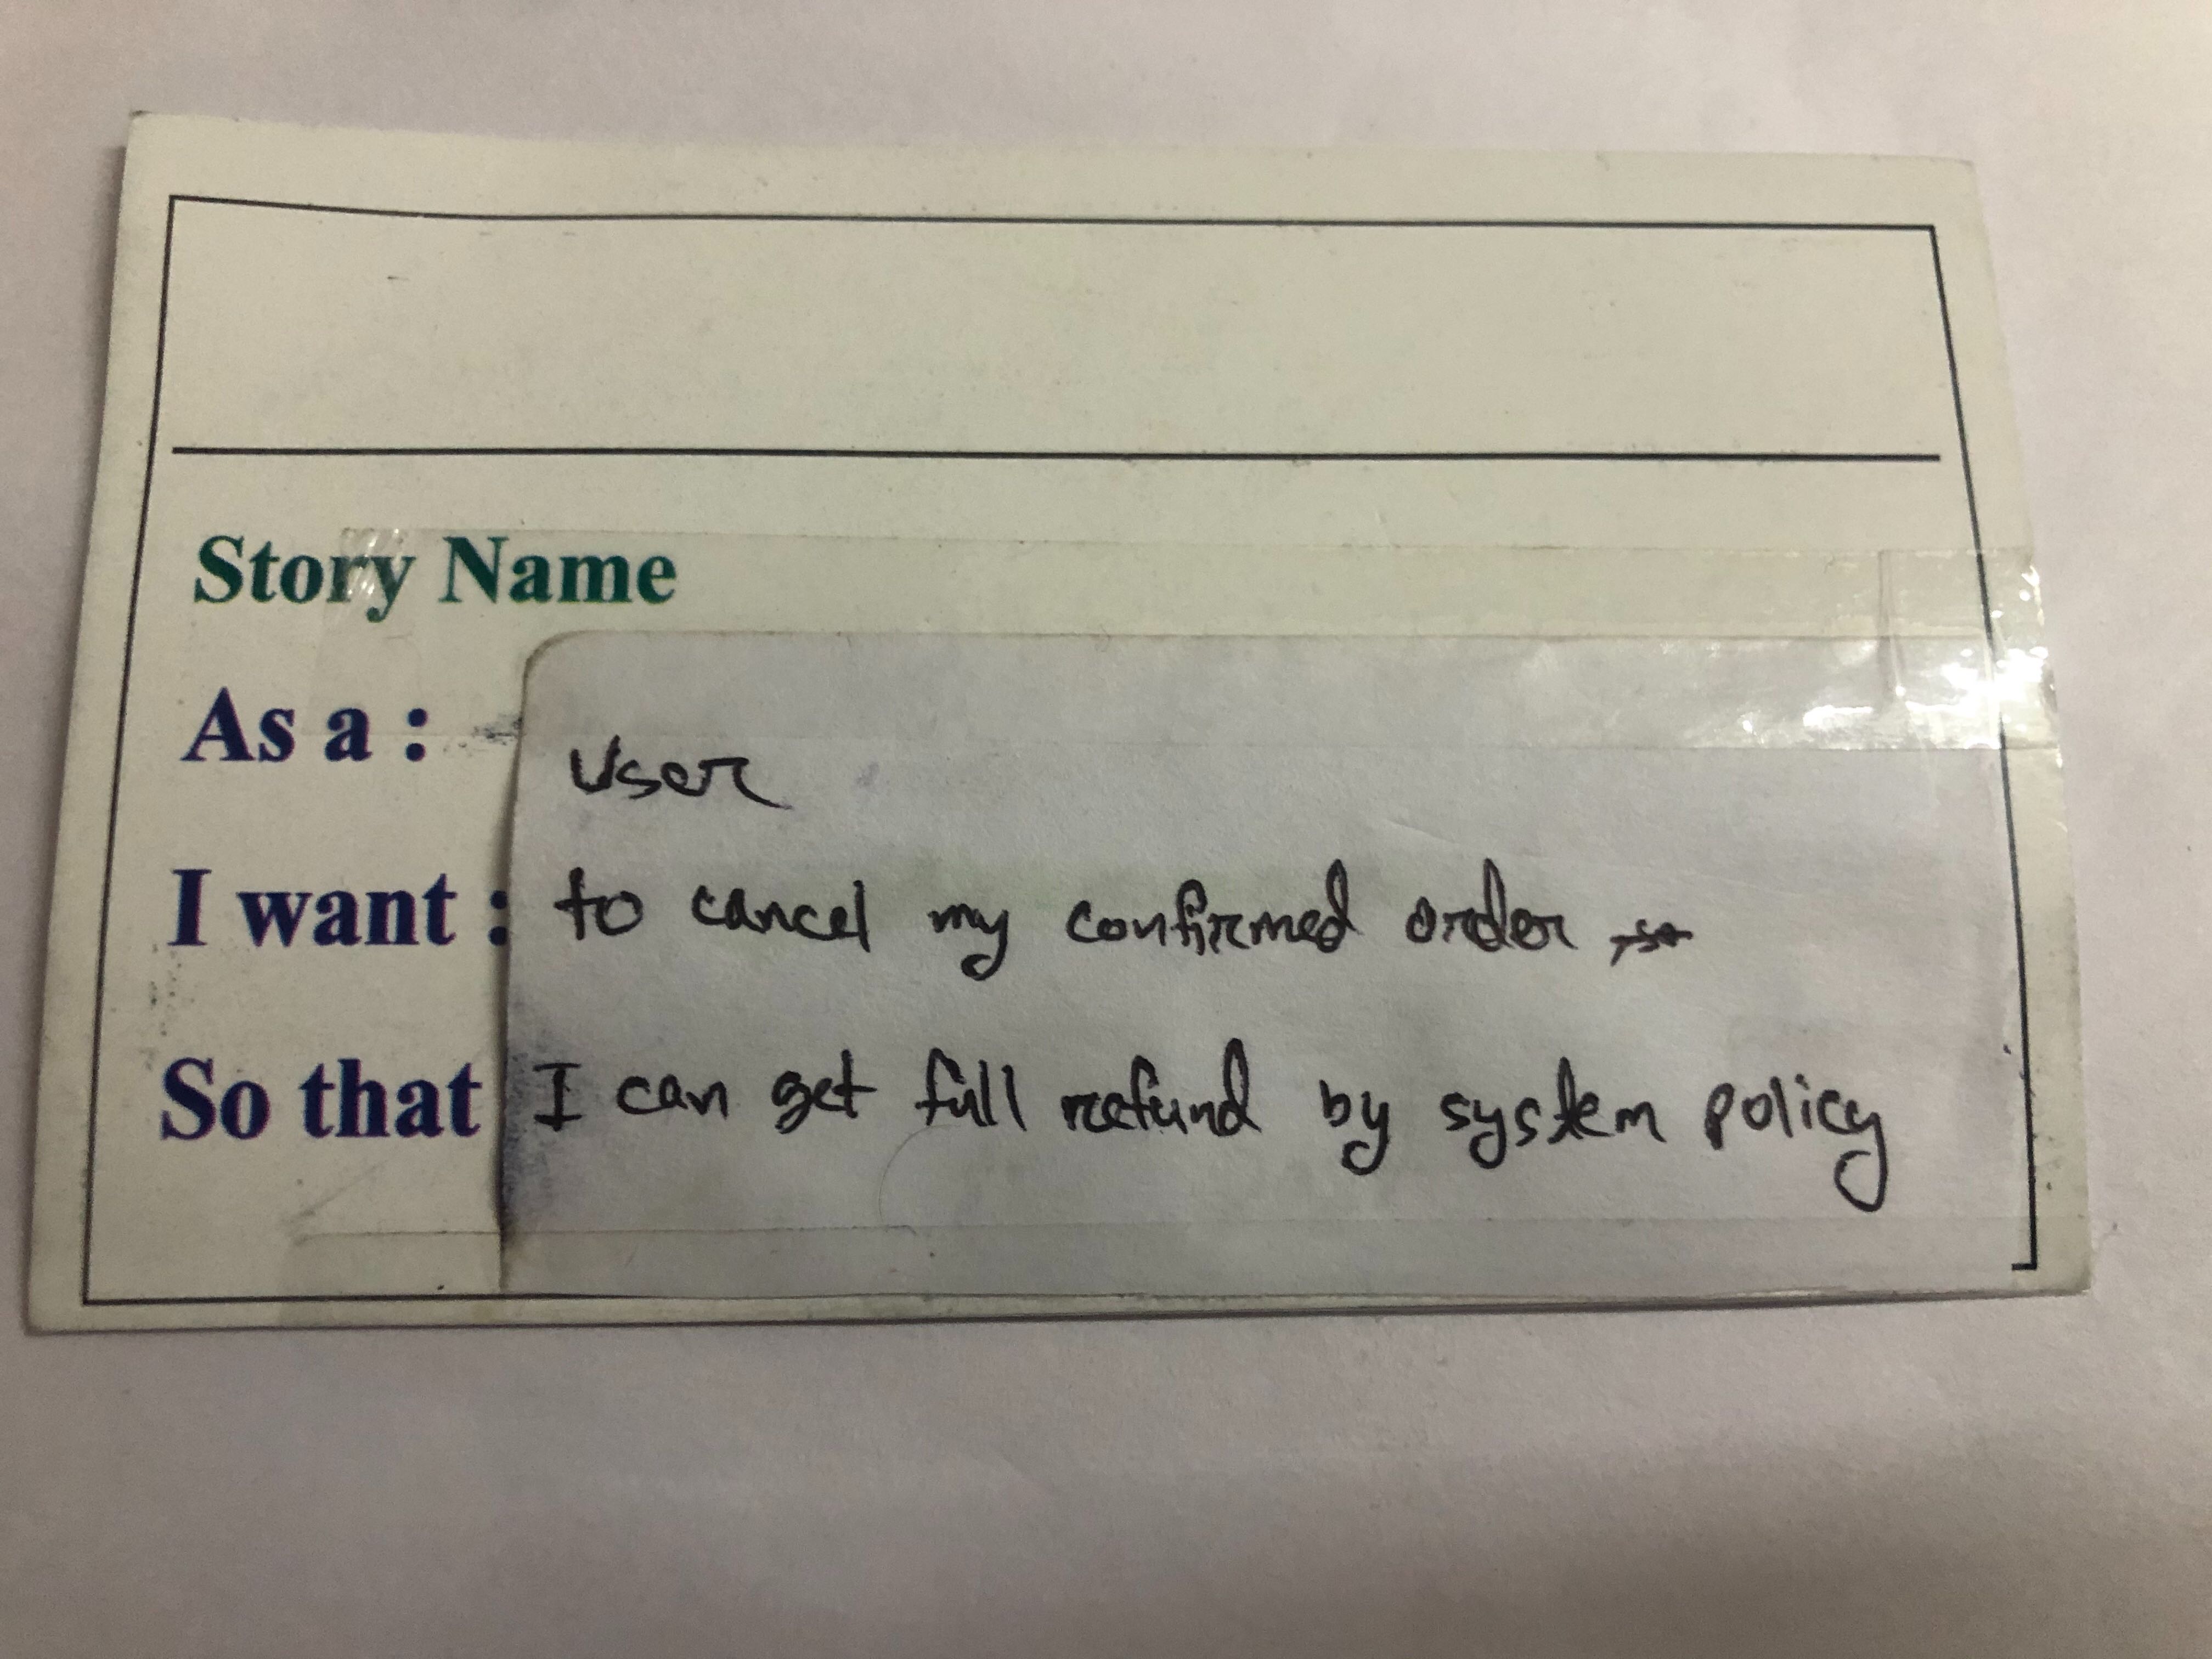 Story Name
As a : User
I want : to cancel my confirmed order
So that I can get full refund by system policy